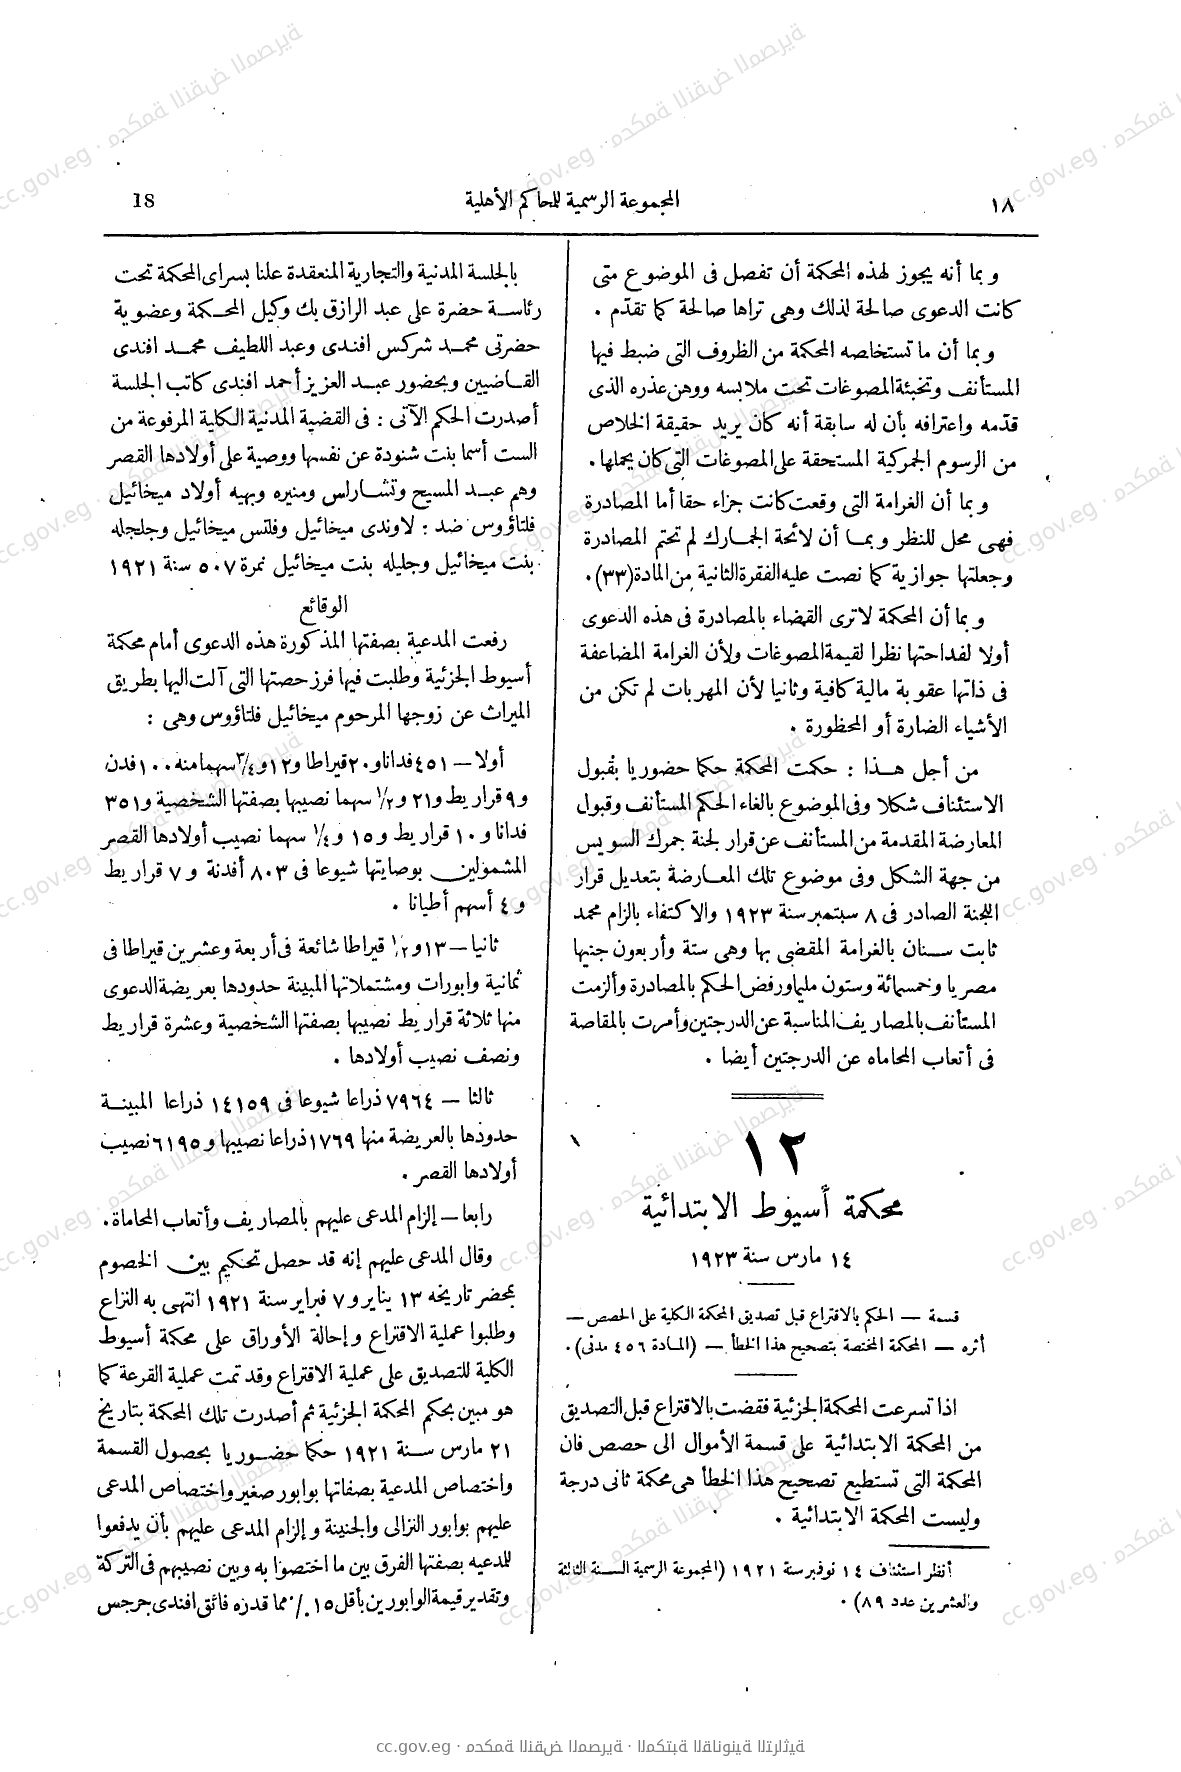 ١٨
المجموعة الرسمية للمحاكم الأهلية
18
وبما أنه يجوز لهذه المحكمة أن تفصل فى الموضوع متى
كانت الدعوى صالحة لذلك وهى تراها صالحة كما تقدّم .
وبما أن ما تستخلصه المحكمة من الظروف التى ضبط فيها
المستأنف وتخبئة المصوغات تحت ملابسه ووهن عذره الذى
قدّمه واعترافه بأن له سابقة أنه كان يريد حقيقة الخلاص
من الرسوم الجمركية المستحقة على المصوغات التى كان يحملها .
وبما أن الغرامة التى وقعت كانت جزاء حقا أما المصادرة
فهى محل للنظر وبما أن لائحة الجمارك لم تحتم المصادرة
وجعلتها جوازية كما نصت عليه الفقرة الثانية من المادة (٣٣) .
وبما أن المحكمة لا ترى القضاء بالمصادرة فى هذه الدعوى
أولا لفداحتها نظرا لقيمة المصوغات ولأن الغرامة المضاعفة
فى ذاتها عقوبة مالية كافية وثانيا لأن المهربات لم تكن من
الأشياء الضارة أو المحظورة .
من أجل هذا : حكمت المحكمة حكما حضوريا بقبول
الاستئناف شكلا وفى الموضوع بالغاء الحكم المستأنف وقبول
المعارضة المقدمة من المستأنف عن قرار لجنة جمرك السويس
من جهة الشكل وفى موضوع تلك المعارضة بتعديل قرار
اللجنة الصادر فى ٨ سبتمبر سنة ١٩٢٣ والاكتفاء بالزام محمد
ثابت سنان بالغرامة المقضى بها وهى ستة وأربعون جنيها
مصريا وخمسمائة وستون مليما ورفض الحكم بالمصادرة وألزمت
المستأنف بالمصاريف المناسبة عن الدرجتين وأمرت بالمقاصة
فى أتعاب المحاماه عن الدرجتين أيضا .
١٢
محكمة أسيوط الابتدائية
١٤ مارس سنة ١٩٢٣
قسمة — الحكم بالاقتراع قبل تصديق المحكمة الكلية على الحصص —
أثره — المحكمة المختصة بتصحيح هذا الخطأ — (المادة ٤٥٦ مدنى) .
اذا تسرعت المحكمة الجزئية فقضت بالاقتراع قبل التصديق
من المحكمة الابتدائية على قسمة الأموال الى حصص فان
المحكمة التى تستطيع تصحيح هذا الخطأ هى محكمة ثانى درجة
وليست المحكمة الابتدائية .
أنظر استئناف ١٤ نوفمبر سنة ١٩٢١ (المجموعة الرسمية السنة الثالثة
والعشرين عدد ٨٩) .
بالجلسة المدنية والتجارية المنعقدة علنا بسراى المحكمة تحت
رئاسة حضرة على عبد الرازق بك وكيل المحكمة وعضوية
حضرتى محمد شركس افندى وعبد اللطيف محمد افندى
القاضيين وبحضور عبد العزيز أحمد افندى كاتب الجلسة
أصدرت الحكم الآتى : فى القضية المدنية الكلية المرفوعة من
الست أسما بنت شنودة عن نفسها ووصية على أولادها القصر
وهم عبد المسيح وتشارلس ومنيره وبهيه أولاد ميخائيل
فلتاؤوس ضد : لاوندى ميخائيل وفلتس ميخائيل وجلجله
بنت ميخائيل وجليله بنت ميخائيل نمرة ٥٠٧ سنة ١٩٢١
الوقائع
رفعت المدعية بصفتها المذكورة هذه الدعوى أمام محكمة
أسيوط الجزئية وطلبت فيها فرز حصتها التى آلت اليها بطريق
الميراث عن زوجها المرحوم ميخائيل فلتاؤوس وهى :
أولا — ٤٥١ فدانا و٢٠ قيراطا و١٢ و٣/٤ سهما منه ١٠٠ فدن
و٩ قراريط و٢١ و١/٢ سهما نصيبها بصفتها الشخصية و٣٥١
فدانا و١٠ قراريط و١٥ و١/٤ سهما نصيب أولادها القصر
المشمولين بوصايتها شيوعا فى ٨٠٣ أفدنة و٧ قراريط
و٤ أسهم أطيانا .
ثانيا — ١٣ و١/٢ قيراطا شائعة فى أربعة وعشرين قيراطا فى
ثمانية وابورات ومشتملاتها المبينة حدودها بعريضة الدعوى
منها ثلاثة قراريط نصيبها بصفتها الشخصية وعشرة قراريط
ونصف نصيب أولادها .
ثالثا — ٧٩٦٤ ذراعا شيوعا فى ١٤١٥٩ ذراعا المبينة
حدودها بالعريضة منها ١٧٦٩ ذراعا نصيبها و٦١٩٥ نصيب
أولادها القصر .
رابعا — إلزام المدعى عليهم بالمصاريف وأتعاب المحاماة .
وقال المدعى عليهم إنه قد حصل تحكيم بين الخصوم
بمحضر تاريخه ١٣ يناير و٧ فبراير سنة ١٩٢١ انتهى به النزاع
وطلبوا عملية الاقتراع وإحالة الأوراق على محكمة أسيوط
الكلية للتصديق على عملية الاقتراع وقد تمت عملية القرعة كما
هو مبين بحكم المحكمة الجزئية ثم أصدرت تلك المحكمة بتاريخ
٢١ مارس سنة ١٩٢١ حكما حضوريا بحصول القسمة
واختصاص المدعية بصفاتها بوابور صغير واختصاص المدعى
عليهم بوابور النزالى والجنينة وإلزام المدعى عليهم بأن يدفعوا
للمدعيه بصفتها الفرق بين ما اختصوا به وبين نصيبهم فى التركة
وتقدير قيمة الوابورين بأقل ١٥٪ مما قدره فائق افندى جرجس
cc.gov.eg · محكمة النقض المصرية · المكتبة القانونية التراثية